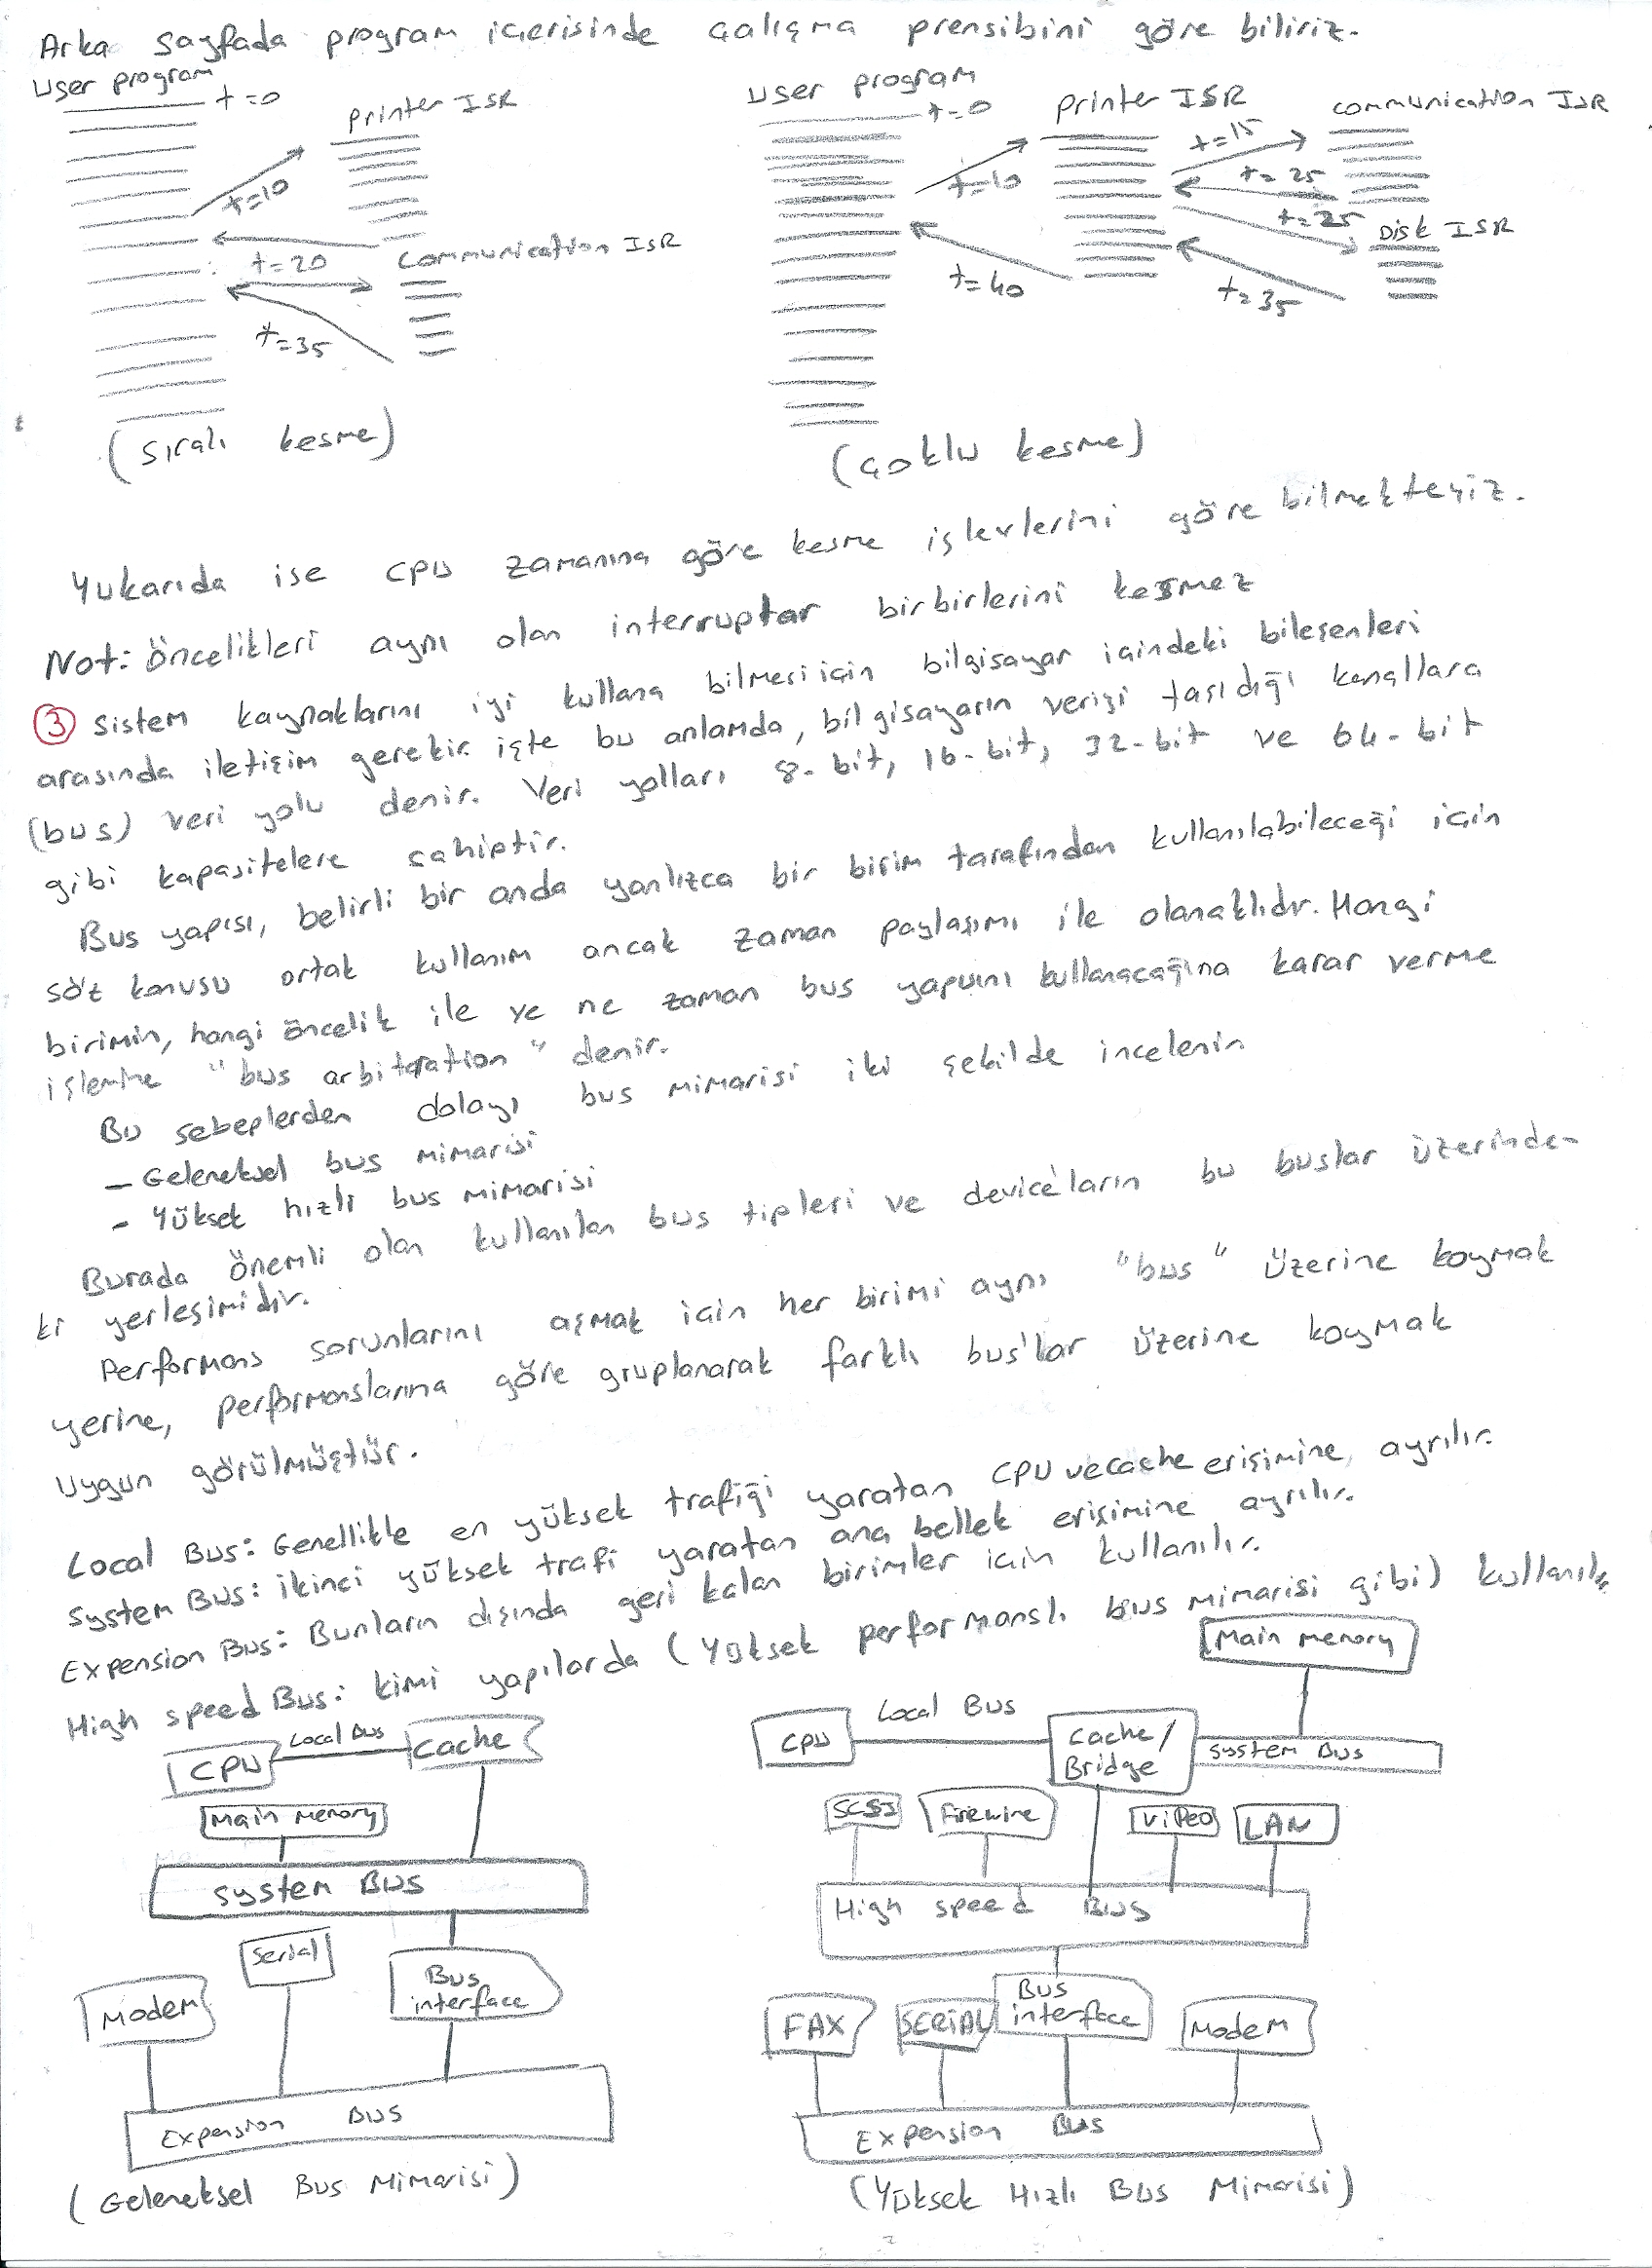 Arka sayfada program içerisinde çalışma prensibini göre biliriz.
User program
t=0
Printer ISR
t=10
t=20
Communication ISR
t=35
(Sıralı kesme)
User program
t=0
Printer ISR
communication ISR
t=10
t=15
t=25
t=25
Disk ISR
t=40
t=35
(çoklu kesme)
Yukarıda ise CPU zamanına göre kesme işlevlerini göre bilmekteyiz.
Not: Öncelikleri aynı olan interruptar birbirlerini kesmez
3 Sistem kaynaklarını iyi kullana bilmesi için bilgisayar içindeki bileşenleri
arasında iletişim gerekir. işte bu anlamda, bilgisayarın veriyi taşıdığı kanallara
(bus) veri yolu denir. Veri yolları 8-bit, 16-bit, 32-bit ve 64-bit
gibi kapasitelere sahiptir.
Bus yapısı, belirli bir anda yanlızca bir birim tarafından kullanılabileceği için
söz konusu ortak kullanım ancak zaman paylaşımı ile olanaklıdır. Hangi
birimin, hangi öncelik ile ve ne zaman bus yapısını kullanacağına karar verme
işlemine "bus arbitration" denir.
Bu sebeplerden dolayı bus mimarisi iki şekilde incelenir
- Geleneksel bus mimarisi
- Yüksek hızlı bus mimarisi
Burada önemli olan kullanılan bus tipleri ve device'ların bu buslar üzerinde-
ki yerleşimidir.
Performans sorunlarını aşmak için her birimi aynı "bus" üzerine koymak
yerine, performanslarına göre gruplanarak farklı bus'lar üzerine koymak
uygun görülmüştür.
Local Bus: Genellikle en yüksek trafiği yaratan CPU ve cache erişimine ayrılır.
System Bus: ikinci yüksek trafi yaratan ana bellek erişimine ayrılır.
Expension Bus: Bunların dışında geri kalan birimler için kullanılır.
High speed Bus: kimi yapılarda (Yüksek performanslı bus mimarisi gibi) kullanılır
CPU
Local Bus
Cache
Main memory
System Bus
Serial
Modem
Bus
interface
Expension Bus
(Geleneksel Bus Mimarisi)
Main memory
CPU
Local Bus
Cache/
Bridge
System Bus
SCSI
Firewire
Video
LAN
High speed Bus
FAX
SERiAL
Bus
interface
Modem
Expension Bus
(Yüksek Hızlı Bus Mimarisi)